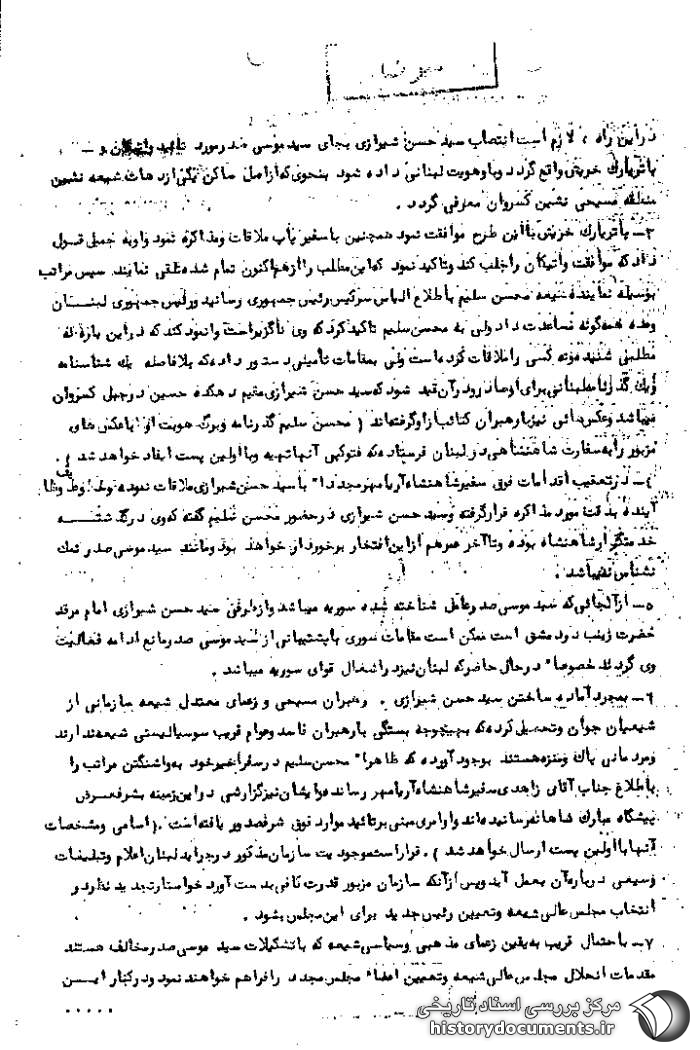 در این راه ، لازم است انتصاب سید حسن شیرازی بجای سید موسی صدر مورد تائید واتیکان و —
پاتریارک خریش واقع گردد و باو هویت لبنانی داده شود بنحوی که از اصل ساکن یکی از دهات شیعه نشین
منطقه مسیحی نشین کسروان معرفی گردد .
۳— پاتریارک خریش با این طرح موافقت نمود همچنین با سفیر پاپ ملاقات و مذاکره نمود و او به جمیل قول
داد که موافقت واتیکان را جلب کند و تاکید نمود که این مطلب را از هم اکنون تمام شده تلقی نمایند سپس مراتب
بوسیله نماینده شیعه محسن سلیم باطلاع الیاس سرکیس رئیس جمهوری رسانید و رئیس جمهوری لبنان
وعده همه گونه مساعدت داد ولی به محسن سلیم تاکید کرد که وی ناگزیر است وانمود کند که در این باره نه
مطلبی شنیده و نه کسی را ملاقات کرده است ولی بمقامات تأمینی دستور داده که بلافاصله یک شناسنامه
و یک گذرنامه لبنانی برای او صادر و در آن قید شود که سید حسن شیرازی مقیم دهکده حسین در جبل کسروان
میباشد و عکسهائی نیز با رهبران کتائب از او گرفته اند ( محسن سلیم گذرنامه و برگ هویت او را با عکس های
مزبور را به سفارت شاهنشاهی در لبنان فرستاده که فتوکپی آنها تهیه و با اولین پست ایفاد خواهد شد ) .
۴— در تعقیب اقدامات فوق سفیر شاهنشاه آریامهر مجددا" با سید حسن شیرازی ملاقات نموده و وظائف
آینده بدقت مورد مذاکره قرار گرفته و سید حسن شیرازی در حضور محسن سلیم گفته که وی در گذشته
خدمتگزار شاهنشاه بوده و تا آخر عمر هم از این افتخار برخوردار خواهد بود و مانند سید موسی صدر نمک
نشناس نمیباشد .
۵— از آنجائی که سید موسی صدر عامل شناخته شده سوریه میباشد و از طرفی سید حسن شیرازی امام مرقد
حضرت زینب در دمشق است ممکن است مقامات سوری با پشتیبانی از سید موسی صدر مانع ادامه فعالیت
وی گردند خصوصا" در حال حاضر که لبنان نیز در اشغال قوای سوریه میباشد .
۶— بمجرد آماده ساختن سید حسن شیرازی . رهبران مسیحی و زعمای معتدل شیعه سازمانی از
شیعیان جوان و تحصیل کرده که بهیچوجه بستگی با رهبران فاسد و عوام فریب سوسیالیستی شیعه ندارند
و مردمانی پاک و منزه هستند بوجود آورده که ظاهرا" محسن سلیم در سفر اخیر خود به واشنگتن مراتب را
باطلاع جناب آقای زاهدی سفیر شاهنشاه آریامهر رسانده و ایشان نیز گزارشی در این زمینه بشرفعرض
پیشگاه مبارک شاهانه رسانیده اند و اوامری مبنی بر تائید موارد فوق شرفصدور یافته است . ( اسامی و مشخصات
آنها با اولین پست ارسال خواهد شد ) . قرار است موجودیت سازمان مذکور در جراید لبنان اعلام و تبلیغات
وسیعی درباره آن بعمل آید و پس از آنکه سازمان مزبور قدرت کافی بدست آورد خواستار تجدید نظر در
انتخاب مجلس عالی شیعه و تعیین رئیس جدید برای این مجلس بشود .
۷— با احتمال قریب به یقین زعمای مذهبی و سیاسی شیعه که با تشکیلات سید موسی صدر مخالف هستند
مقدمات انحلال مجلس عالی شیعه و تعیین اعضاء مجلس مجدد را فراهم خواهند نمود و در کنار ایـــن
.....
مرکز بررسی اسناد تاریخی
historydocuments.ir